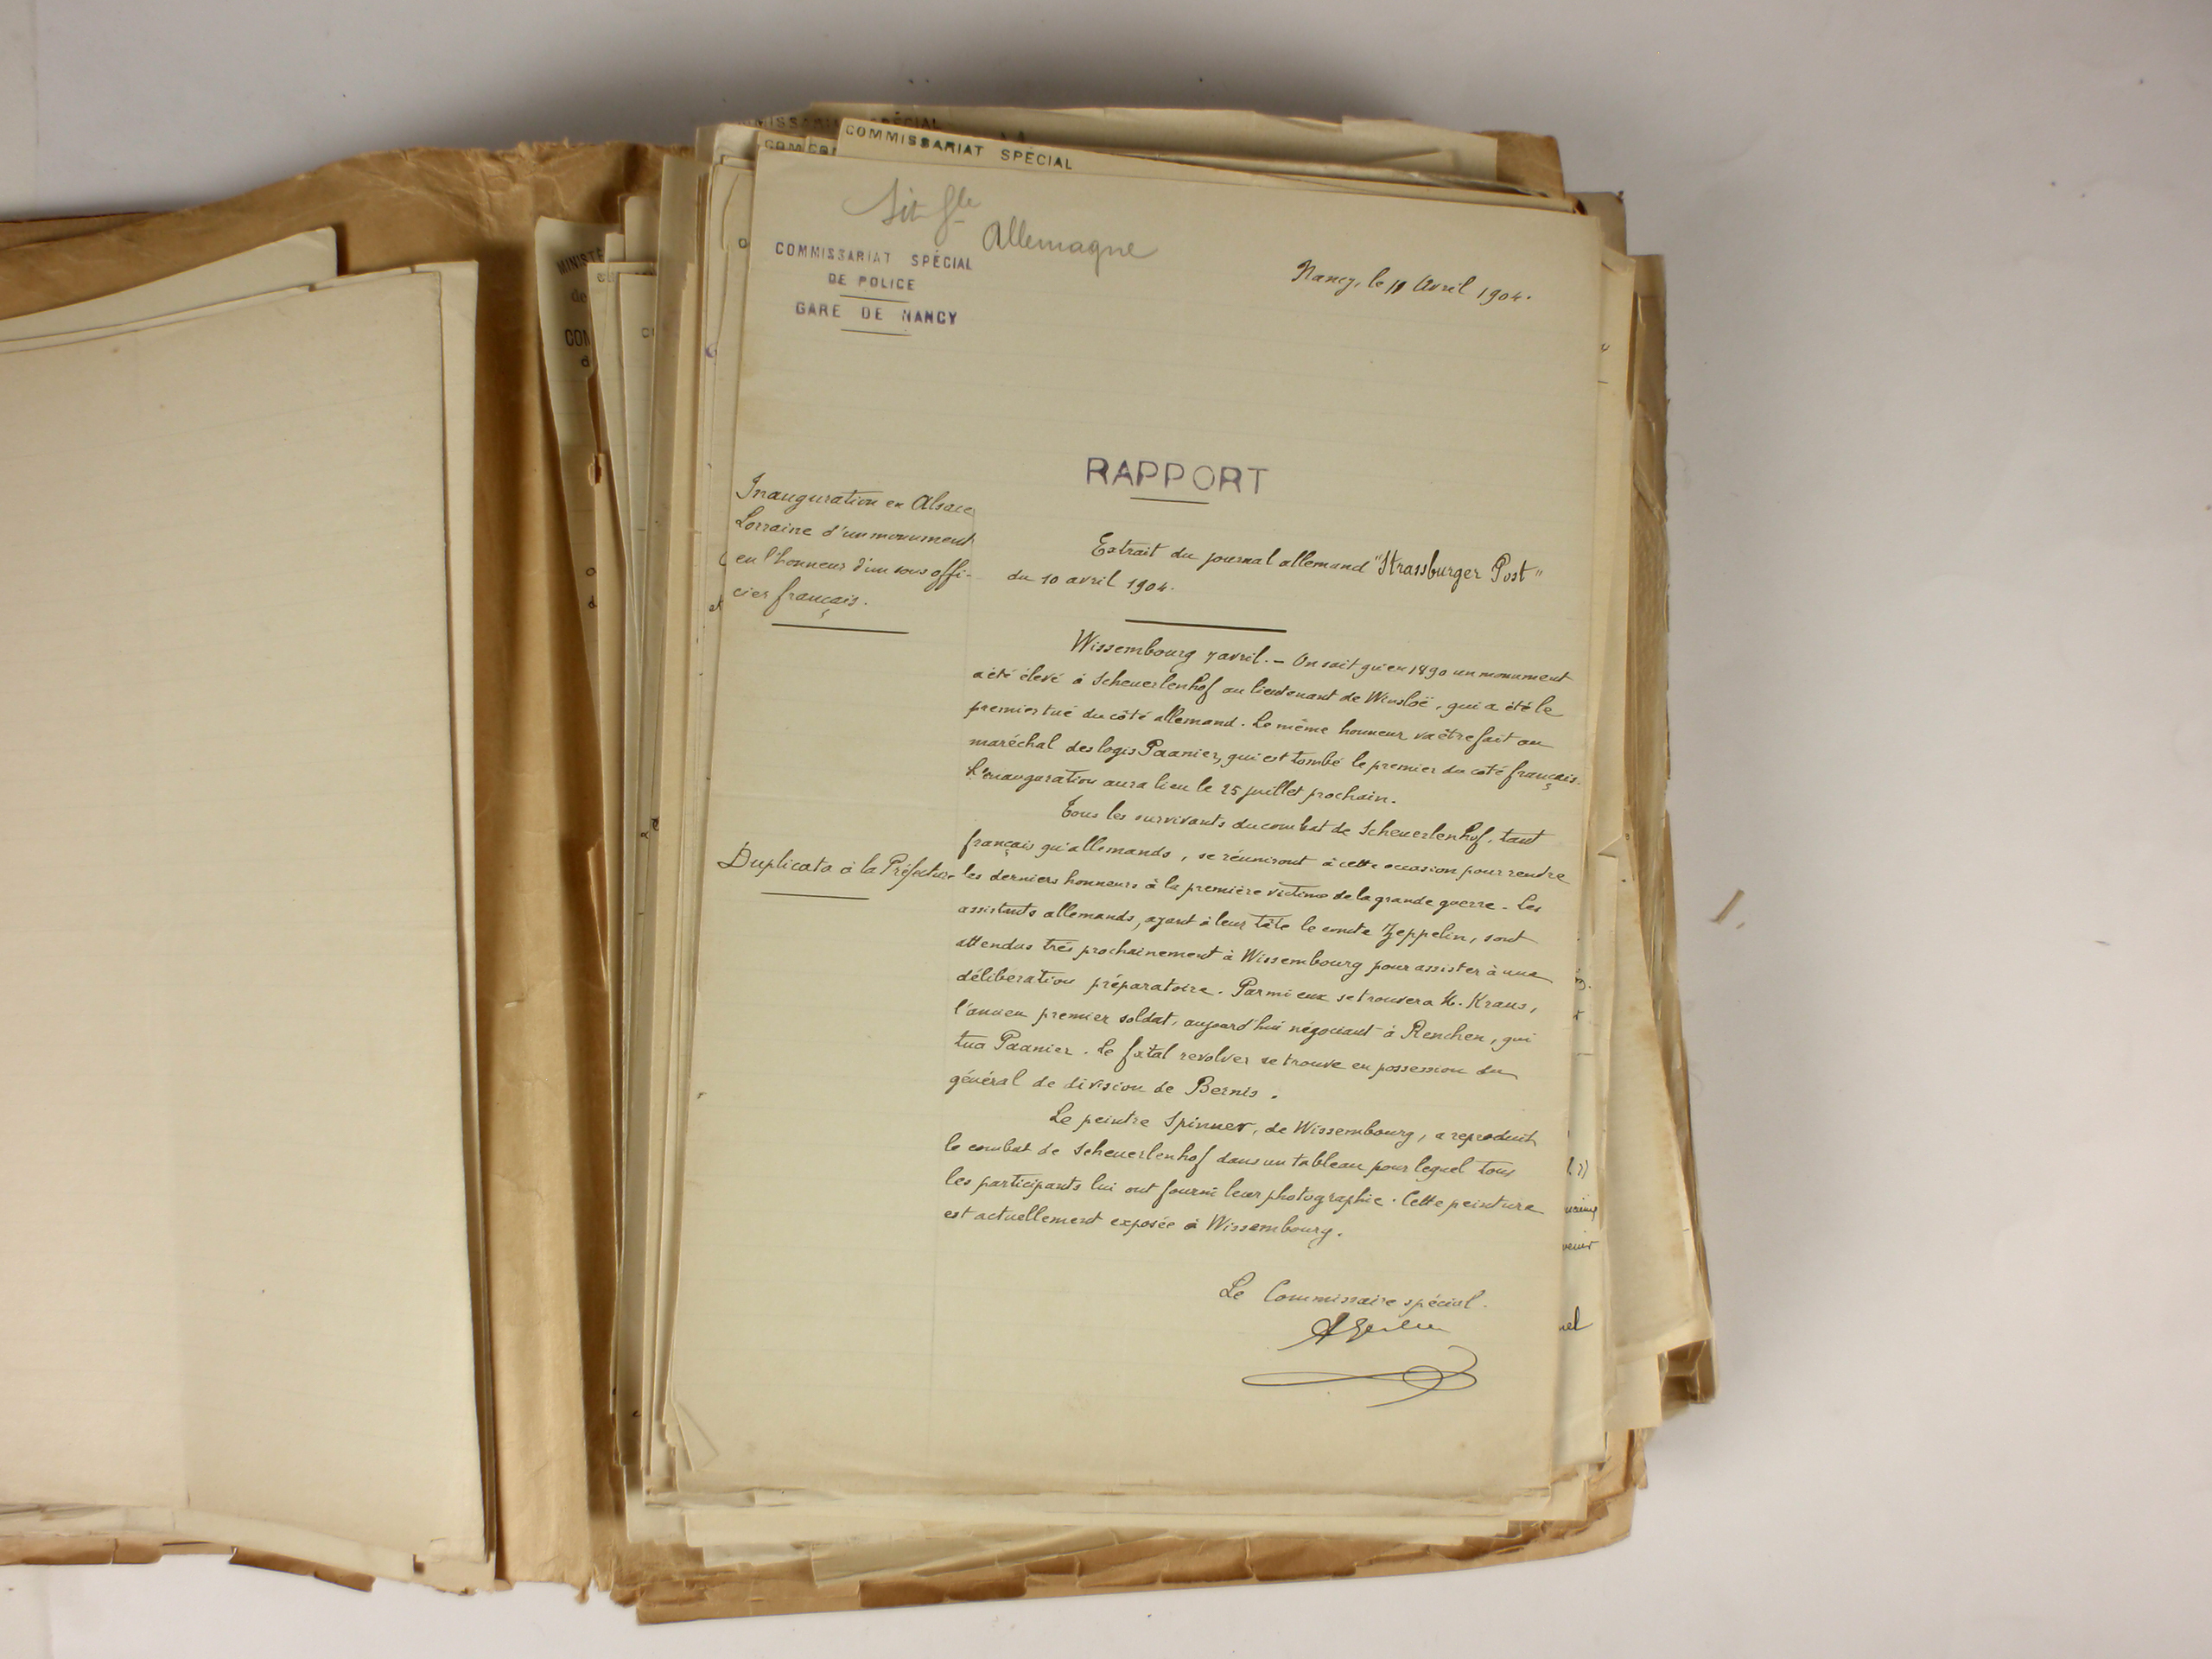 COMMISSARIAT SPÉCIAL
Sit Gle
Allemagne
COMMISSARIAT SPÉCIAL
DE POLICE
GARE DE NANCY
Nancy, le 11 Avril 1904.
RAPPORT
Inauguration en Alsace
Lorraine d'un monument
en l'honneur d'un sous offi-
cier français.
Extrait du journal allemand "Strassburger Post"
du 10 avril 1904.
Wissembourg 7 avril. - On sait qu'en 1890 un monument
a été élevé à Scheuerlenhof au lieutenant de Winsloë, qui a été le
premier tué du côté allemand. Le même honneur va être fait au
maréchal des logis Paanier, qui est tombé le premier du coté français.
L'inauguration aura lieu le 25 juillet prochain.
Tous les survivants du combat de Scheuerlenhof, tant
français qu'allemands, se réuniront à cette occasion pour rendre
Duplicata à la Préfecture
les derniers honneurs à la première victime de la grande guerre. Les
assistants allemands, ayant à leur tête le comte Zeppelin, sont
attendus très prochainement à Wissembourg pour assister à une
délibération préparatoire. Parmi eux se trouvera M. Kraus,
l'ancien premier soldat, aujourd'hui négociant à Renchen, qui
tua Paanier. Le fatal revolver se trouve en possession du
général de division de Bernis.
Le peintre Spinner, de Wissembourg, a reproduit
le combat de Scheuerlenhof dans un tableau pour lequel tous
les participants lui ont fourni leur photographie. Cette peinture
est actuellement exposée à Wissembourg.
Le Commissaire spécial.